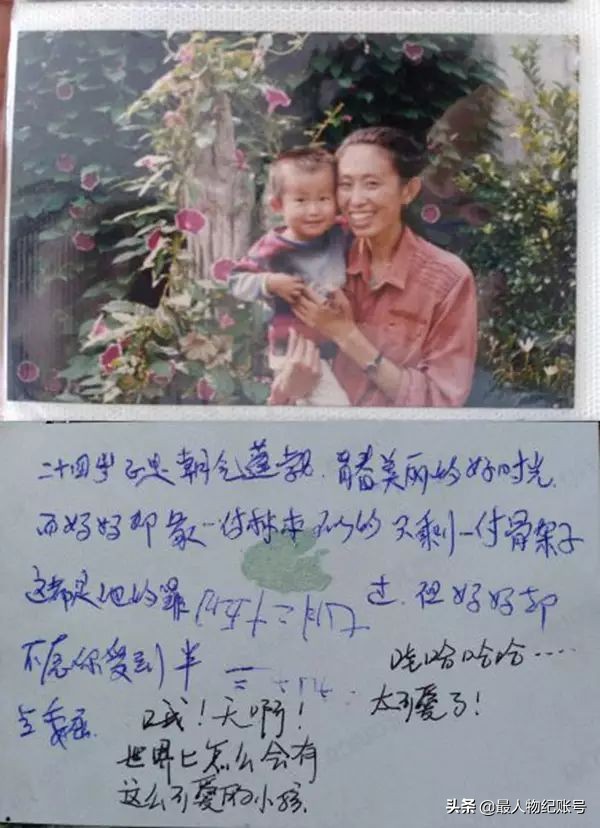 二十四岁正是朝气蓬勃、青春美丽的好时光,
而 却象一付 似的 只剩一付骨架子
这都是他的罪 过,但 却
不愿你受到半
点委屈.
哇哈哈哈……
太可愛了!
哦!天啊!
世界上怎么会有
这么可愛的小孩.
头条 @最人物纪账号